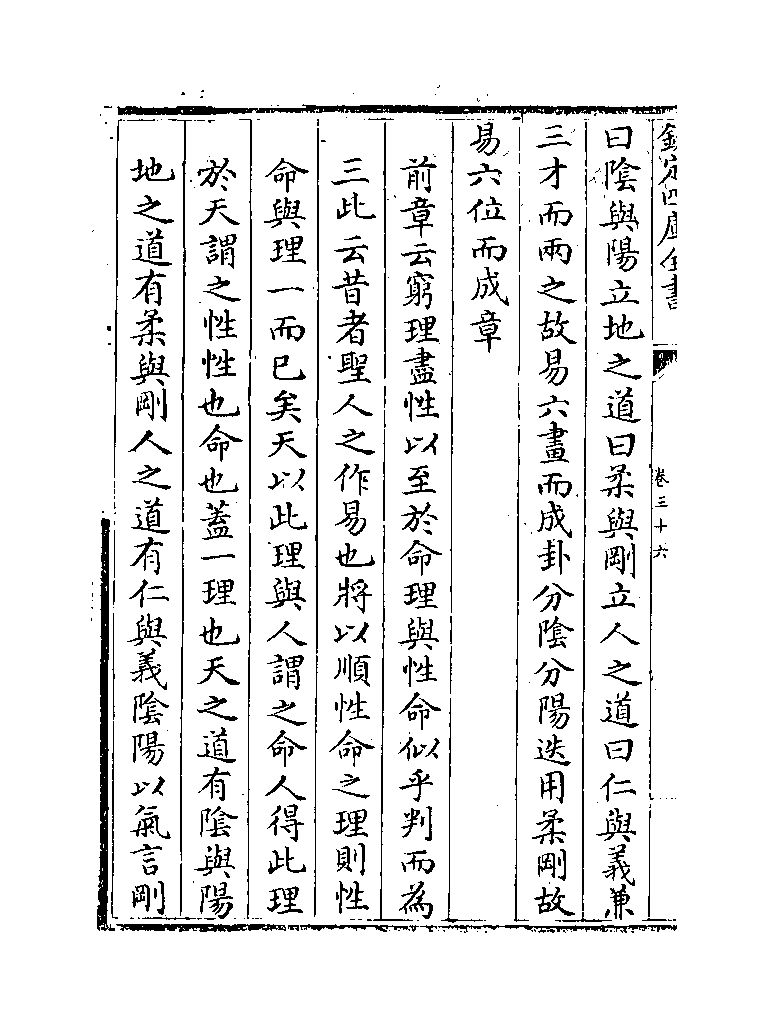 欽定四庫全書
卷三十六
曰陰與陽立地之道曰柔與剛立人之道曰仁與義兼
三才而兩之故易六畫而成卦分陰分陽迭用柔剛故
易六位而成章
前章云窮理盡性以至於命理與性命似乎判而為
三此云昔者聖人之作易也將以順性命之理則性
命與理一而已矣天以此理與人謂之命人得此理
於天謂之性性也命也蓋一理也天之道有陰與陽
地之道有柔與剛人之道有仁與義陰陽以氣言剛